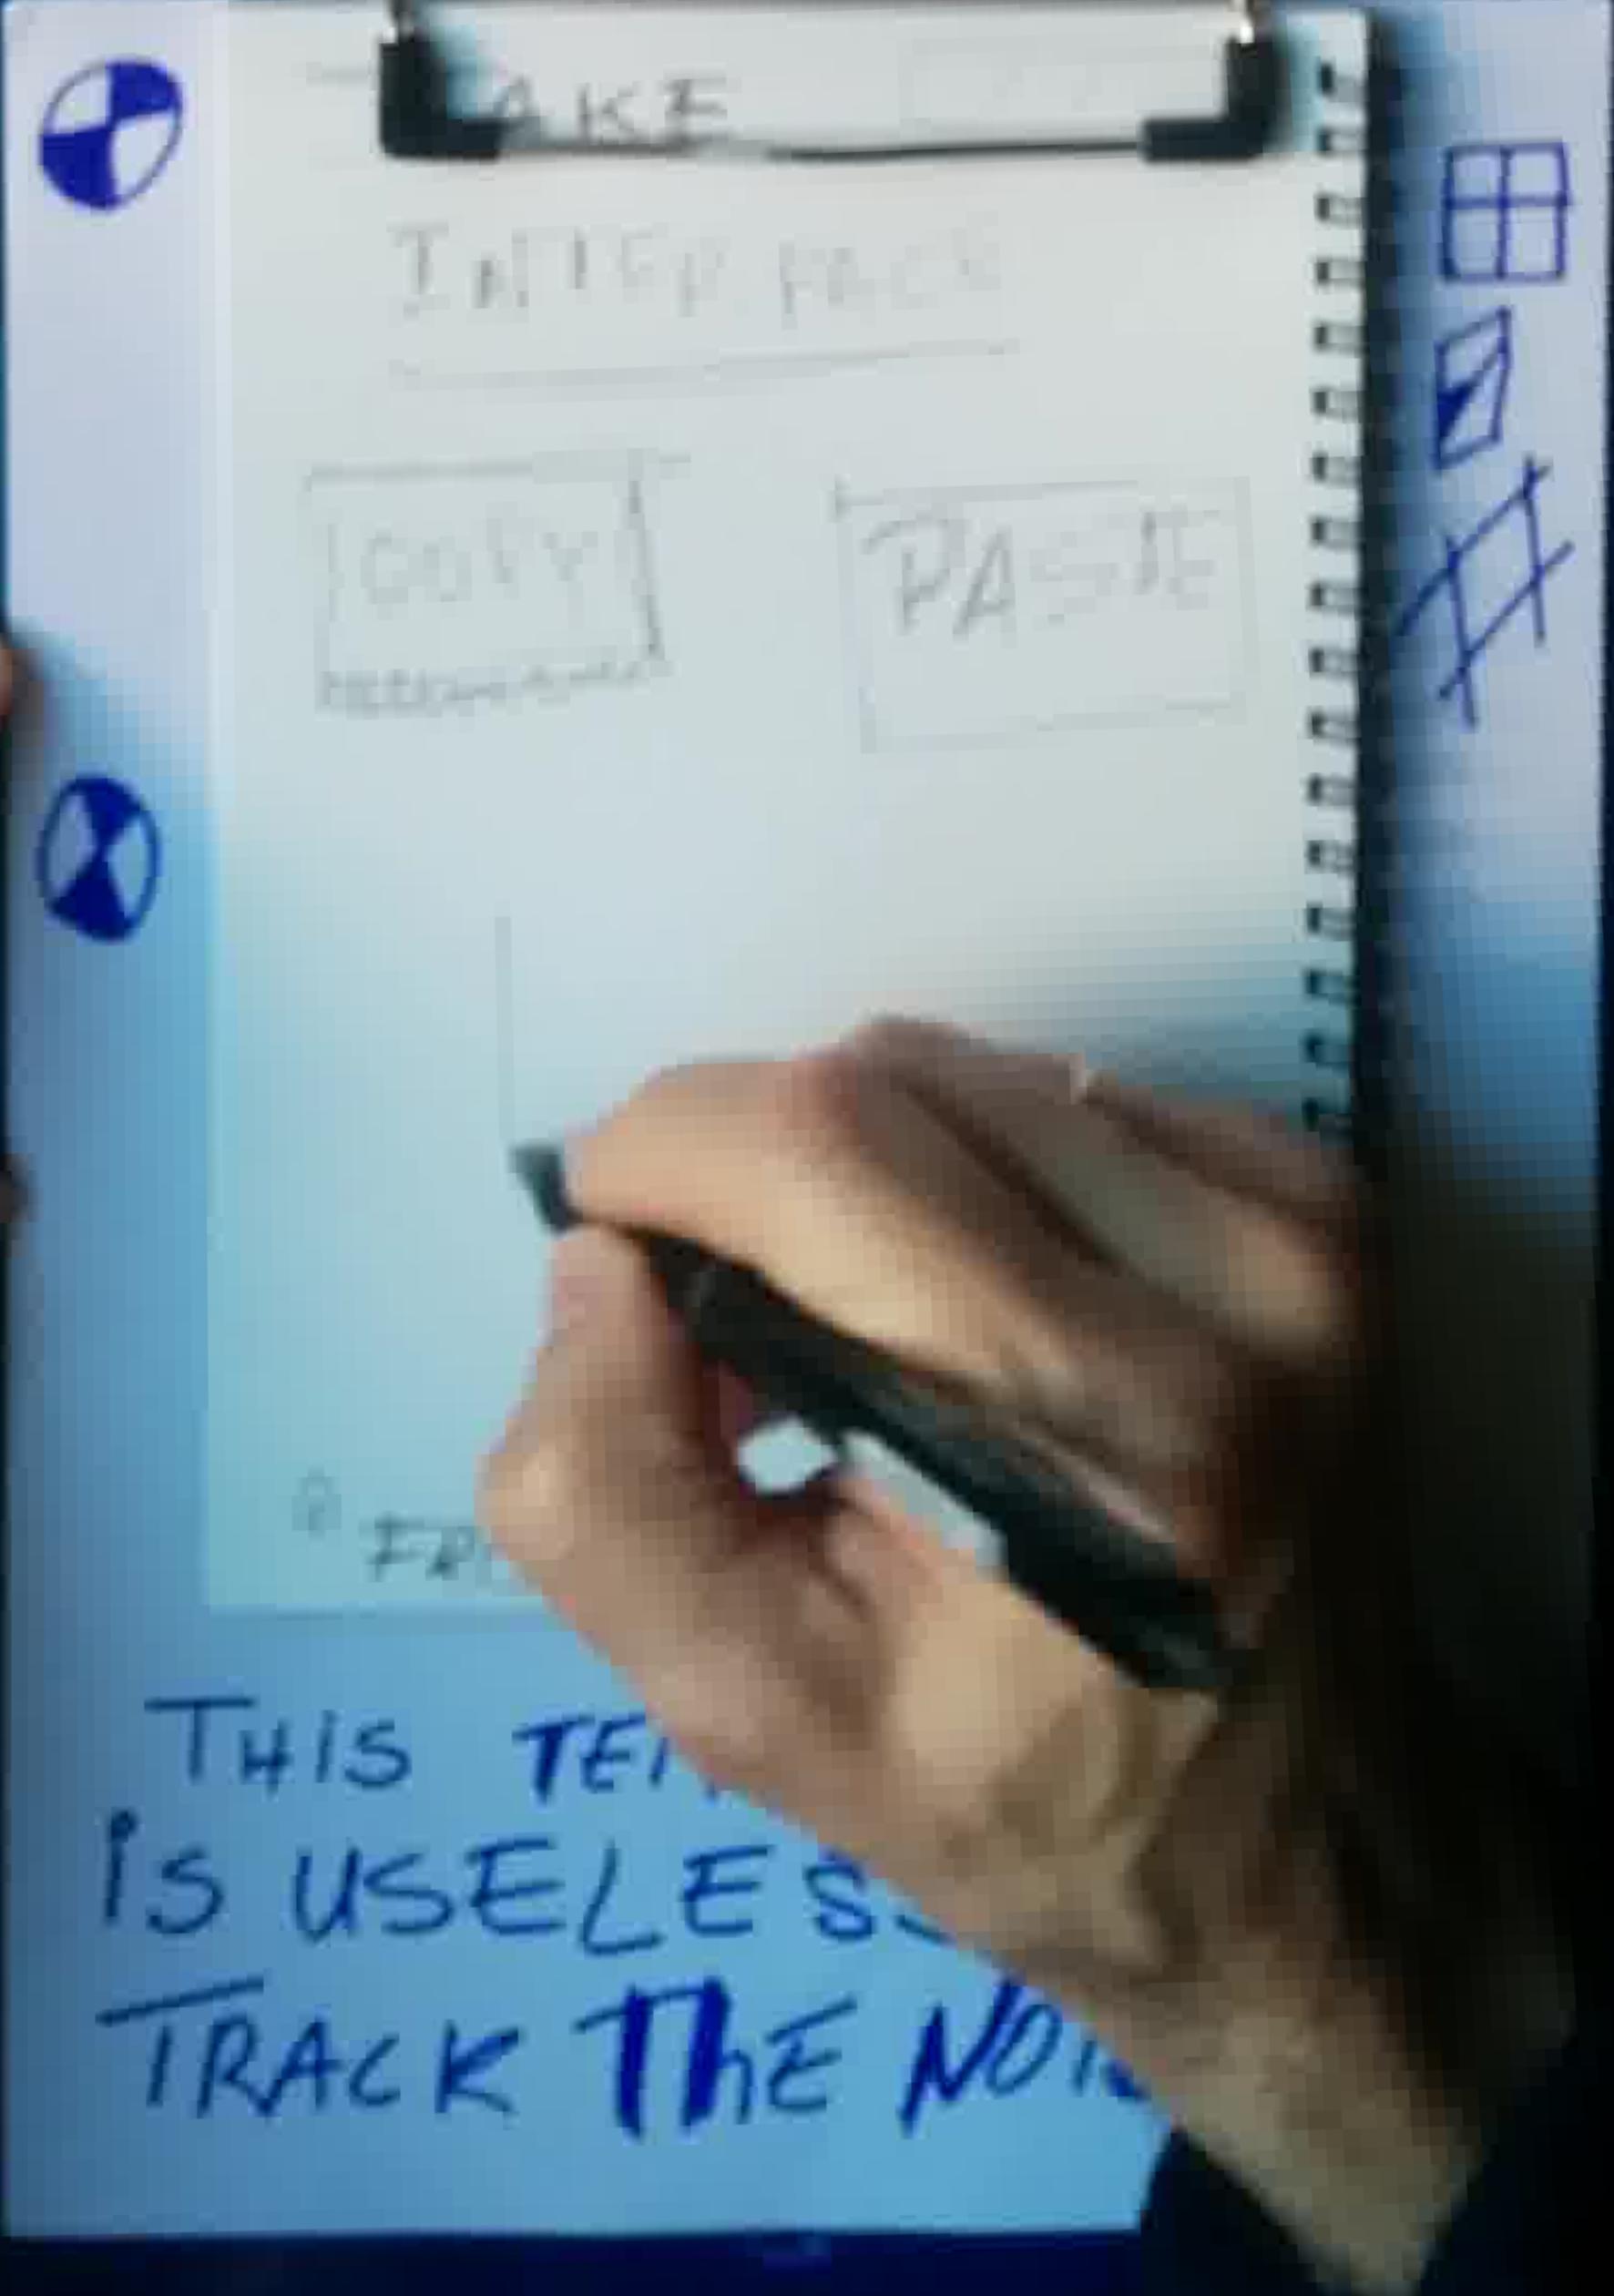 AKE
INTERFACE
COPY PASTE
THIS
iS USELESS
TRACK ThE